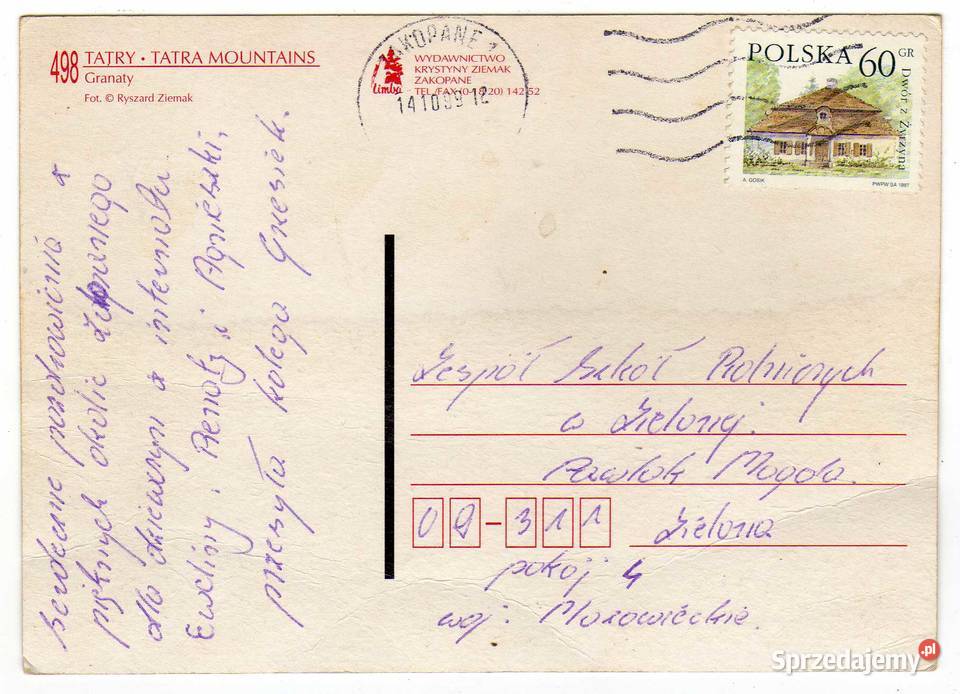 498 TATRY • TATRA MOUNTAINS
Granaty
Fot. © Ryszard Ziemak
ZAKOPANE 1
141099-12
limba
WYDAWNICTWO
KRYSTYNY ZIEMAK
ZAKOPANE
TEL./FAX (0-1820) 142 52
POLSKA 60 GR
Dwór z Żyrzyna
A. GOSIK
PWPW SA 1997
Serdeczne pozdrowienia z
pięknych okolic Zakopanego
dla dziewczyn z internatu
Eweliny, Renaty i Agnieszki,
przesyła kolega Grzesiek.
Zespół Szkół Rolniczych
w Zielonej.
Pawlak Magda.
09-311 Zielona
pokój 4
woj. Mazowieckie.
Sprzedajemy.pl